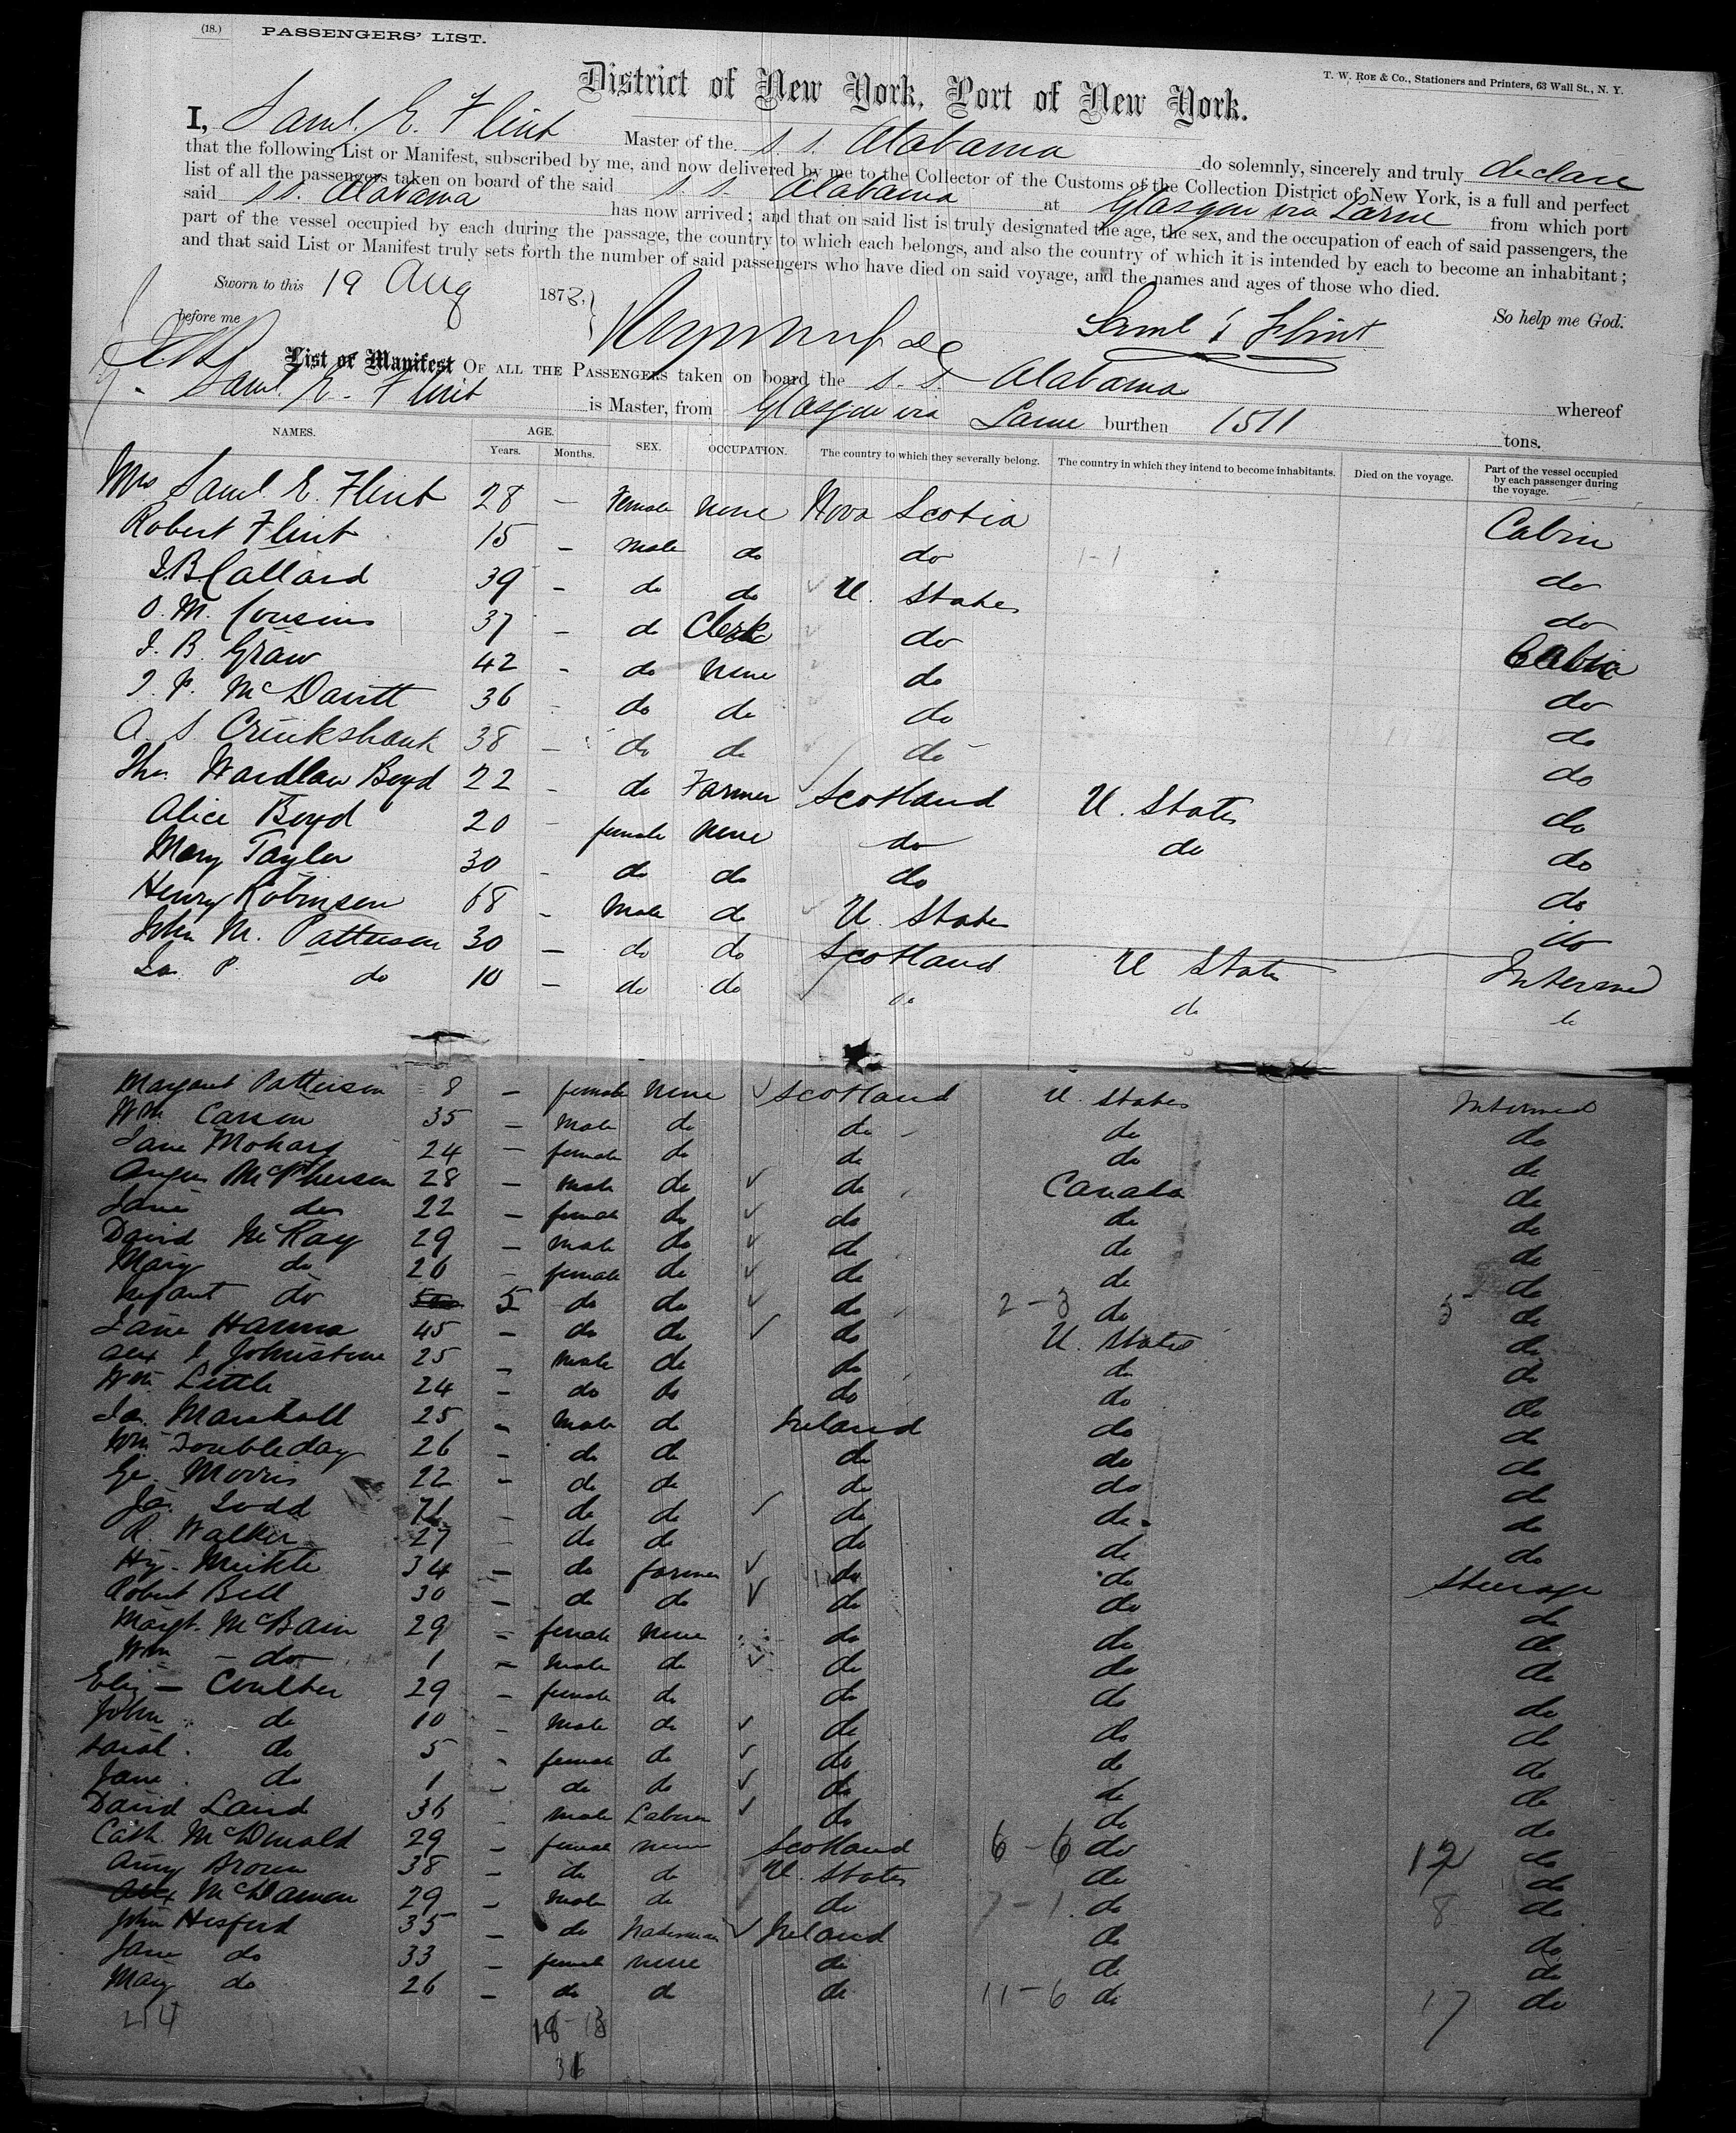 (18.) PASSENGERS' LIST.
T. W. ROE & Co., Stationers and Printers, 63 Wall St., N. Y.
District of New York, Port of New York.
I, Saml. E. Flint Master of the S. S. Alabama do solemnly, sincerely and truly declare
that the following List or Manifest, subscribed by me, and now delivered by me to the Collector of the Customs of the Collection District of New York, is a full and perfect
list of all the passengers taken on board of the said S. S. Alabama at Glasgow via Larne from which port
said SS. Alabama has now arrived; and that on said list is truly designated the age, the sex, and the occupation of each of said passengers, the
part of the vessel occupied by each during the passage, the country to which each belongs, and also the country of which it is intended by each to become an inhabitant;
and that said List or Manifest truly sets forth the number of said passengers who have died on said voyage, and the names and ages of those who died.
So help me God.
Sworn to this 19 Aug 1873,
before me
Saml E Flint
List or Manifest OF ALL THE PASSENGERS taken on board the S. S. Alabama whereof
Saml. E. Flint is Master, from Glasgow via Larne burthen 1511 tons.
NAMES. AGE. Years. Months. SEX. OCCUPATION. The country to which they severally belong. The country in which they intend to become inhabitants. Died on the voyage. Part of the vessel occupied by each passenger during the voyage.
Mrs Saml. E. Flint 28 – Female None Nova Scotia Cabin
Robert Flint 15 – Male do do 1-1 do
J.B. Callard 39 – do do U. States do
O. M. Cousins 37 – do Clerk do Cabin
J. B. Graw 42 – do None do do
J. P. McDavitt 36 – do do do do
A. S Cruikshank 38 – do do do do
Thos. Wardlaw Boyd 22 – do Farmer Scotland U. States do
Alice Boyd 20 – female None do do do
Mary Taylor 30 – do do do do
Henry Robinson 68 – Male do U. States do
John M. Patterson 30 – do do Scotland U States Intermed
Ja. P. do 10 – do do do do do
Margaret Patterson 8 – female None Scotland U. States Intermed
Wm. Carson 35 – Male do do do do
Jane Moharg 24 – female do do do do
Angus McPherson 28 – Male do do Canada do
Jane do 22 – female do do do do
David McKay 29 – Male do do do do
Mary do 26 – female do do do do
Infant do 5 do do do 2-3 do 5 do
Jane Hanna 45 – do do do U. States do
Alex J Johnstone 25 – Male do do do do
Wm. Little 24 – do do do do do
Ja. Marshall 25 – Male do Ireland do do
Wm Doubleday 26 – do do do do do
Ge. Morris 22 – do do do do do
Ja. Todd – do do do do do
R. Walker 27 – do do do do do
Hy. Meikle 34 – do farmer do do Steerage
Robert Bell 30 – do do do do do
Margt. McBain 29 – female None do do do
Wm – do 1 – Male do do do do
Eliz – Coulter 29 – female do do do do
John do 10 – Male do do do do
Sarah. do 5 – female do do do do
Jane. do 1 – do do do do do
David Laird 36 male Laborer do do do
Cath. McDonald 29 – female none Scotland 6-6 do 12 do
Amy Brown 38 – do do U. States do do
Alex McDamon 29 – Male do do 7-1. do 8 do
John Hesford 35 – do Ireland do do
Jane do 33 – female none do do do
Mary do 26 – do do do 11-6 do 17 do
214 18-13
31